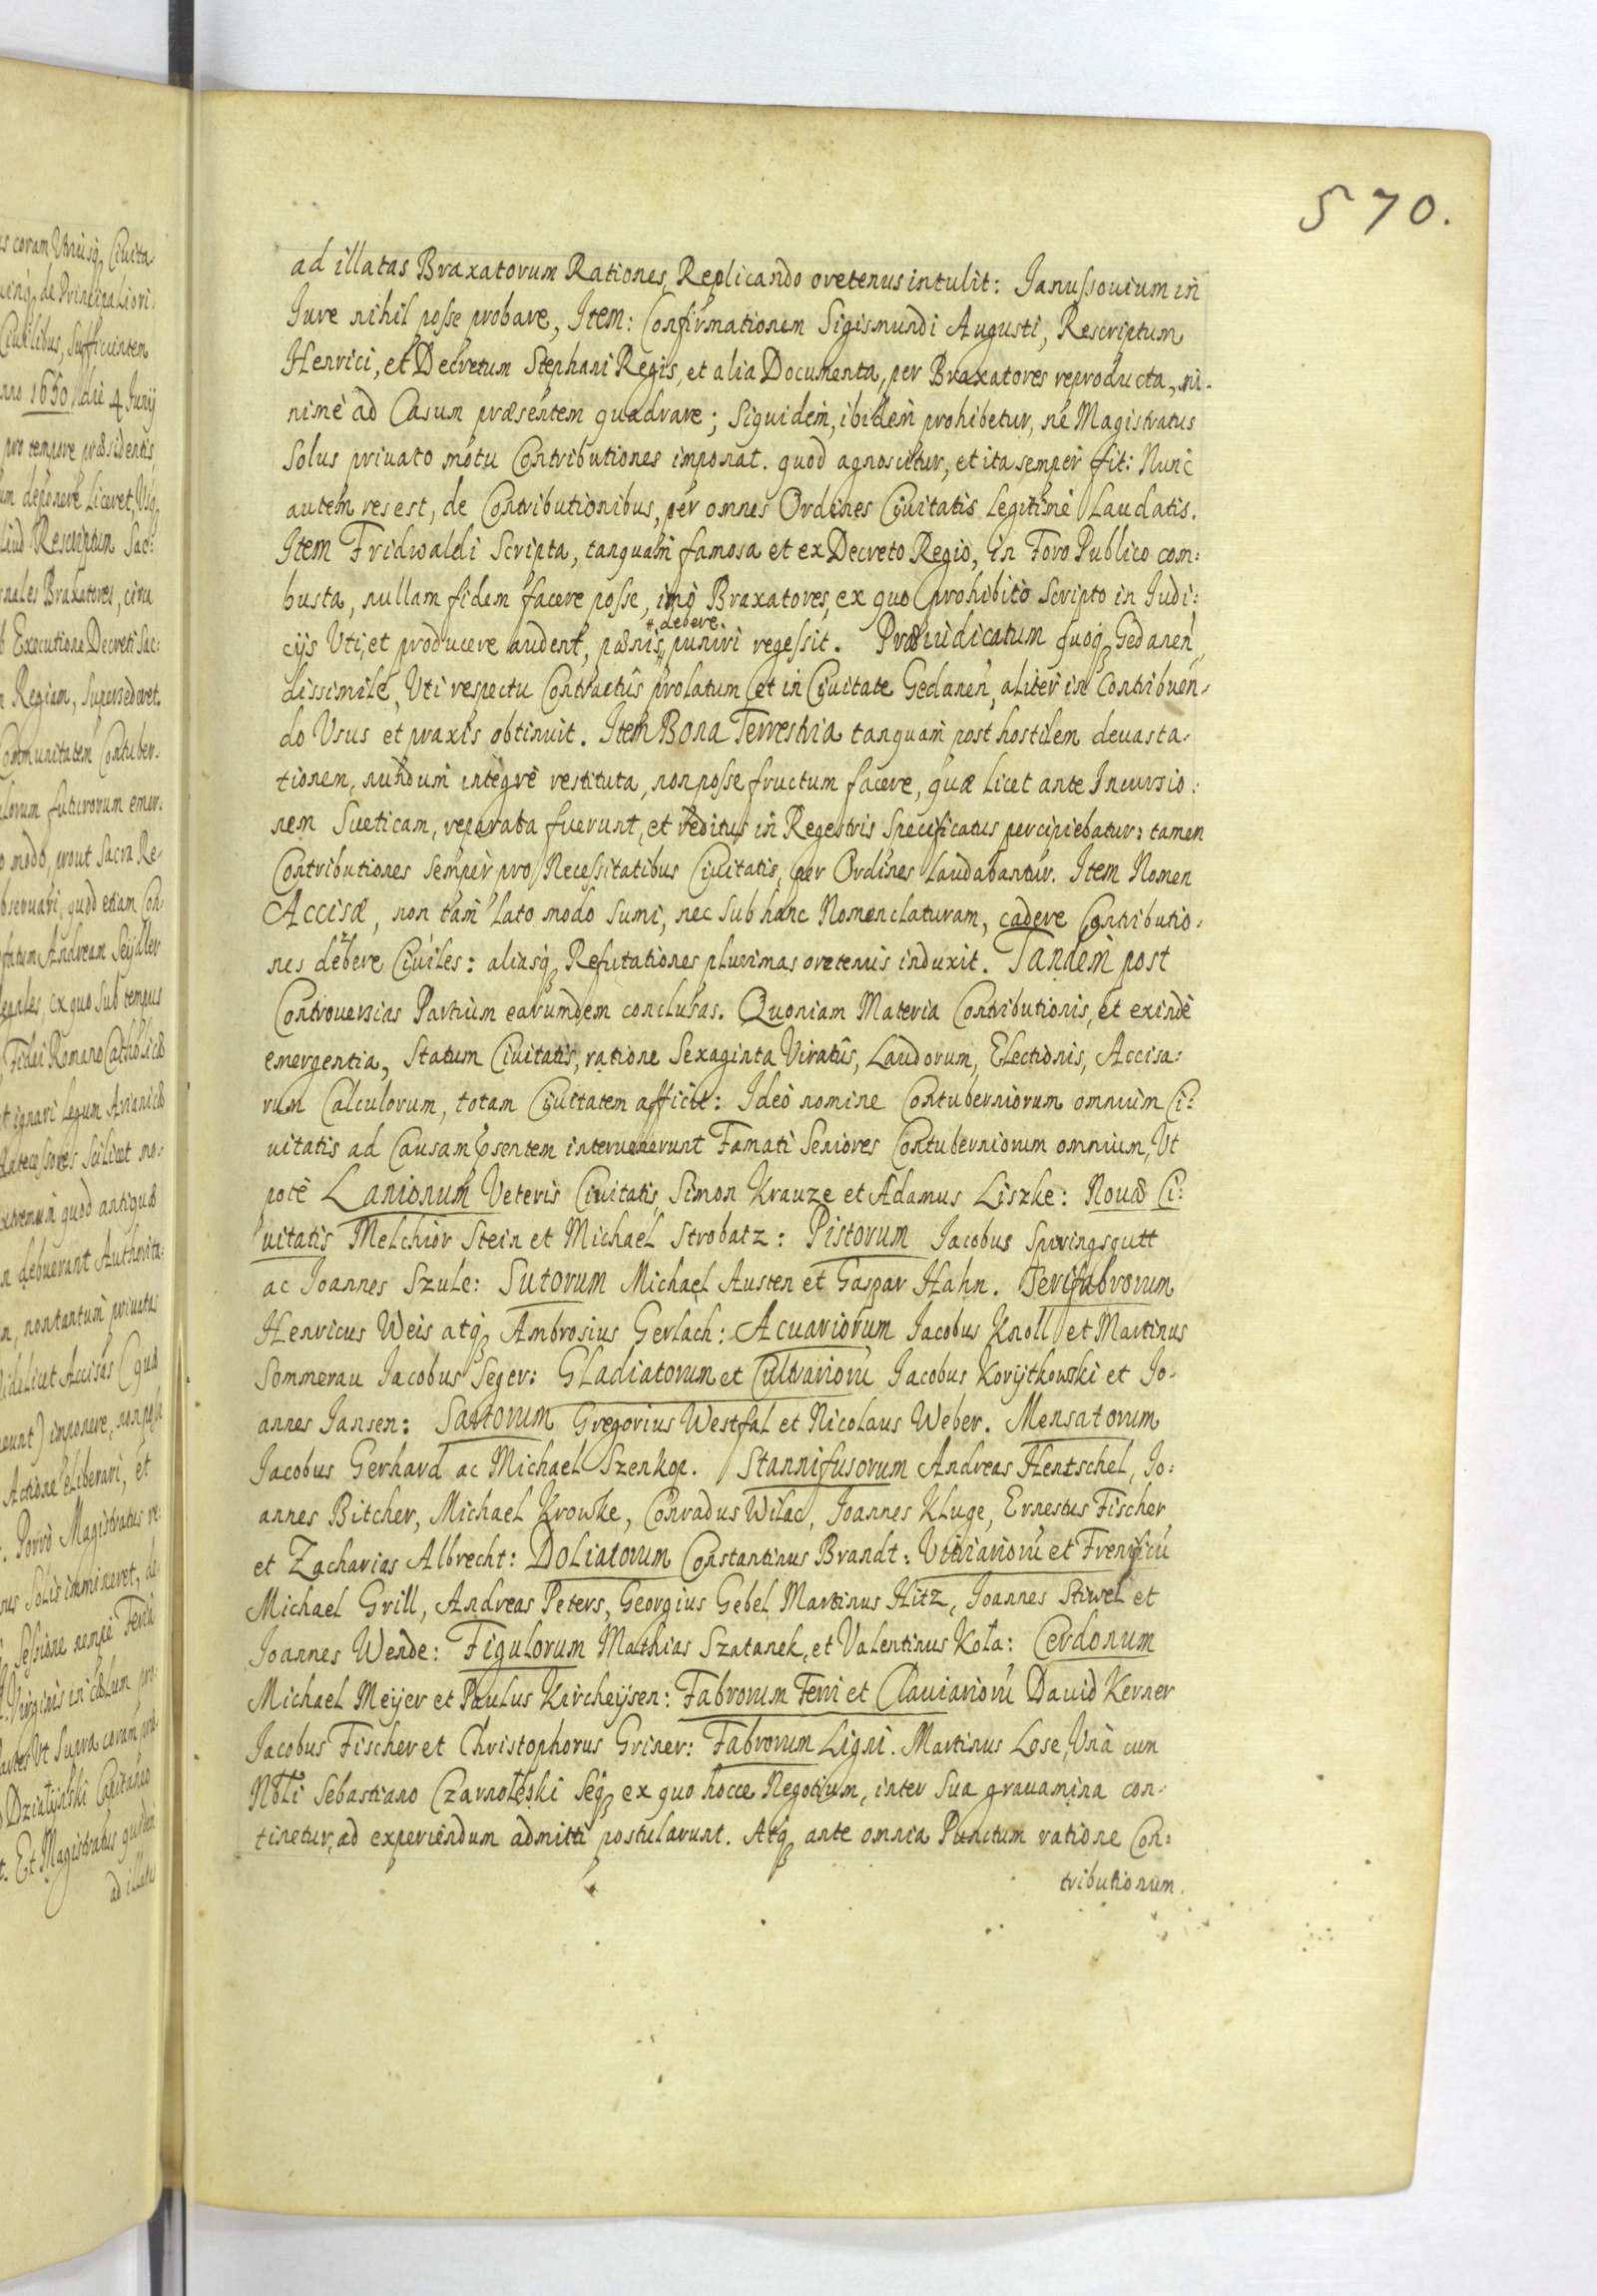 570.
ad illatas Braxatorum Rationes, Replicando oretenus intulit: Janussouium in
Jure nihil posse probare, Item: Confirmationem Sigismundi Augusti, Rescriptum
Henrici, et Decretum Stephani Regis, et alia Documenta, per Braxatores reproducta, mi-
nimè ad Casum præsentem quadrare; Siquidem, ibidem prohibetur, ne Magistratus
Solus priuato motu Contributiones imponat. quod agnoscitur, et ita semper fit: Nunc
autem res est, de Contributionibus, per omnes Ordines Ciuitatis Legitimè Laudatis.
Item Fridwaldi Scripta, tanquam famosa et ex Decreto Regio, in Foro Publico com:
busta, nullam fidem facere posse, imò Braxatores, ex quo prohibito Scripto in Judi:
# debere.
cijs Uti, et producere audent, pænis # puniri regessit. Præiudicatum quoq Gedanen
dissimile, Uti respectu Contractûs prolatum et in Ciuitate Gedanen, aliter in Contribuen-
do Usus et praxis obtinuit. Item Bona Terrestria tanquam post hostilem deuasta-
tionem, nundum integrè restituta, non posse fructum facere, quæ licet ante Incursio:
nem Sueticam, reparata fuerunt, et reditus in Regestris Specificatus percipiebatur: tamen
Contributiones semper pro Necessitatibus Ciuitatis, per Ordines Laudabantur. Item Nomen
Accisæ, non tam lato modo Sumi, nec Sub hanc Nomenclaturam, cadere Contributio-
nes debere Ciuiles: aliasq Refutationes plurimas oretenus induxit. Tandem post
Controuersias Partium earumdem conclusas. Quoniam Materia Contributionis, et exinde
emergentia, Statum Ciuitatis, ratione Sexaginta Viratûs, Laudorum, Electionis, Accisa:
rum Calculorum, totam Ciuitatem afficit: Ideò nomine Contuberniorum omnium Ci:
uitatis ad Causam psentem interuenerunt Famati Seniores Contuberniorum omnium, Ut
potè Lanionum Veteris Ciuitatis, Simon Krauze et Adamus Liszke: Nouæ Ci:
uitatis Melchior Stein et Michael Strobatz: Pistorum Jacobus Springsgutt
ac Joannes Szule: Sutorum Michael Austen et Gaspar Hahn. Serifabrorum
Henricus Weis atq Ambrosius Gerlach: Acuariorum Jacobus Knoll et Martinus
Sommerau Jacobus Seger: Gladiatorum et Cultrariorū Jacobus Korijtkowski et Jo-
annes Jansen: Sartorum Gregorius Westfal et Nicolaus Weber. Mensatorum
Jacobus Gerhard ac Michael Szenkop. Stannifusorum Andreas Hentschel, Jo:
annes Bitcher, Michael Krowke, Conradus Wilac, Joannes Kluge, Ernestus Fischer
et Zacharias Albrecht: Doliatorum Constantinus Brandt: Vitriariorū et Frenificū
Michael Grill, Andreas Peters, Georgius Gebel Martinus Hitz, Joannes Stiwel et
Joannes Wende: Figulorum Mathias Szatanek, et Valentinus Kota: Cerdonum
Michael Meijer et Paulus Kircheijsen: Fabrorum Ferri et Clauiariorū Dauid Kerner
Jacobus Fischer et Christophorus Griner: Fabrorum Ligni. Martinus Lose, Unà cum
Nobli Sebastiano Czarnoleski Seq ex quo hocce Negotium, inter Sua grauamina con-
tinetur, ad experiendum admitti postularunt. Atq ante omnia Punctum ratione Con:
tributionum.